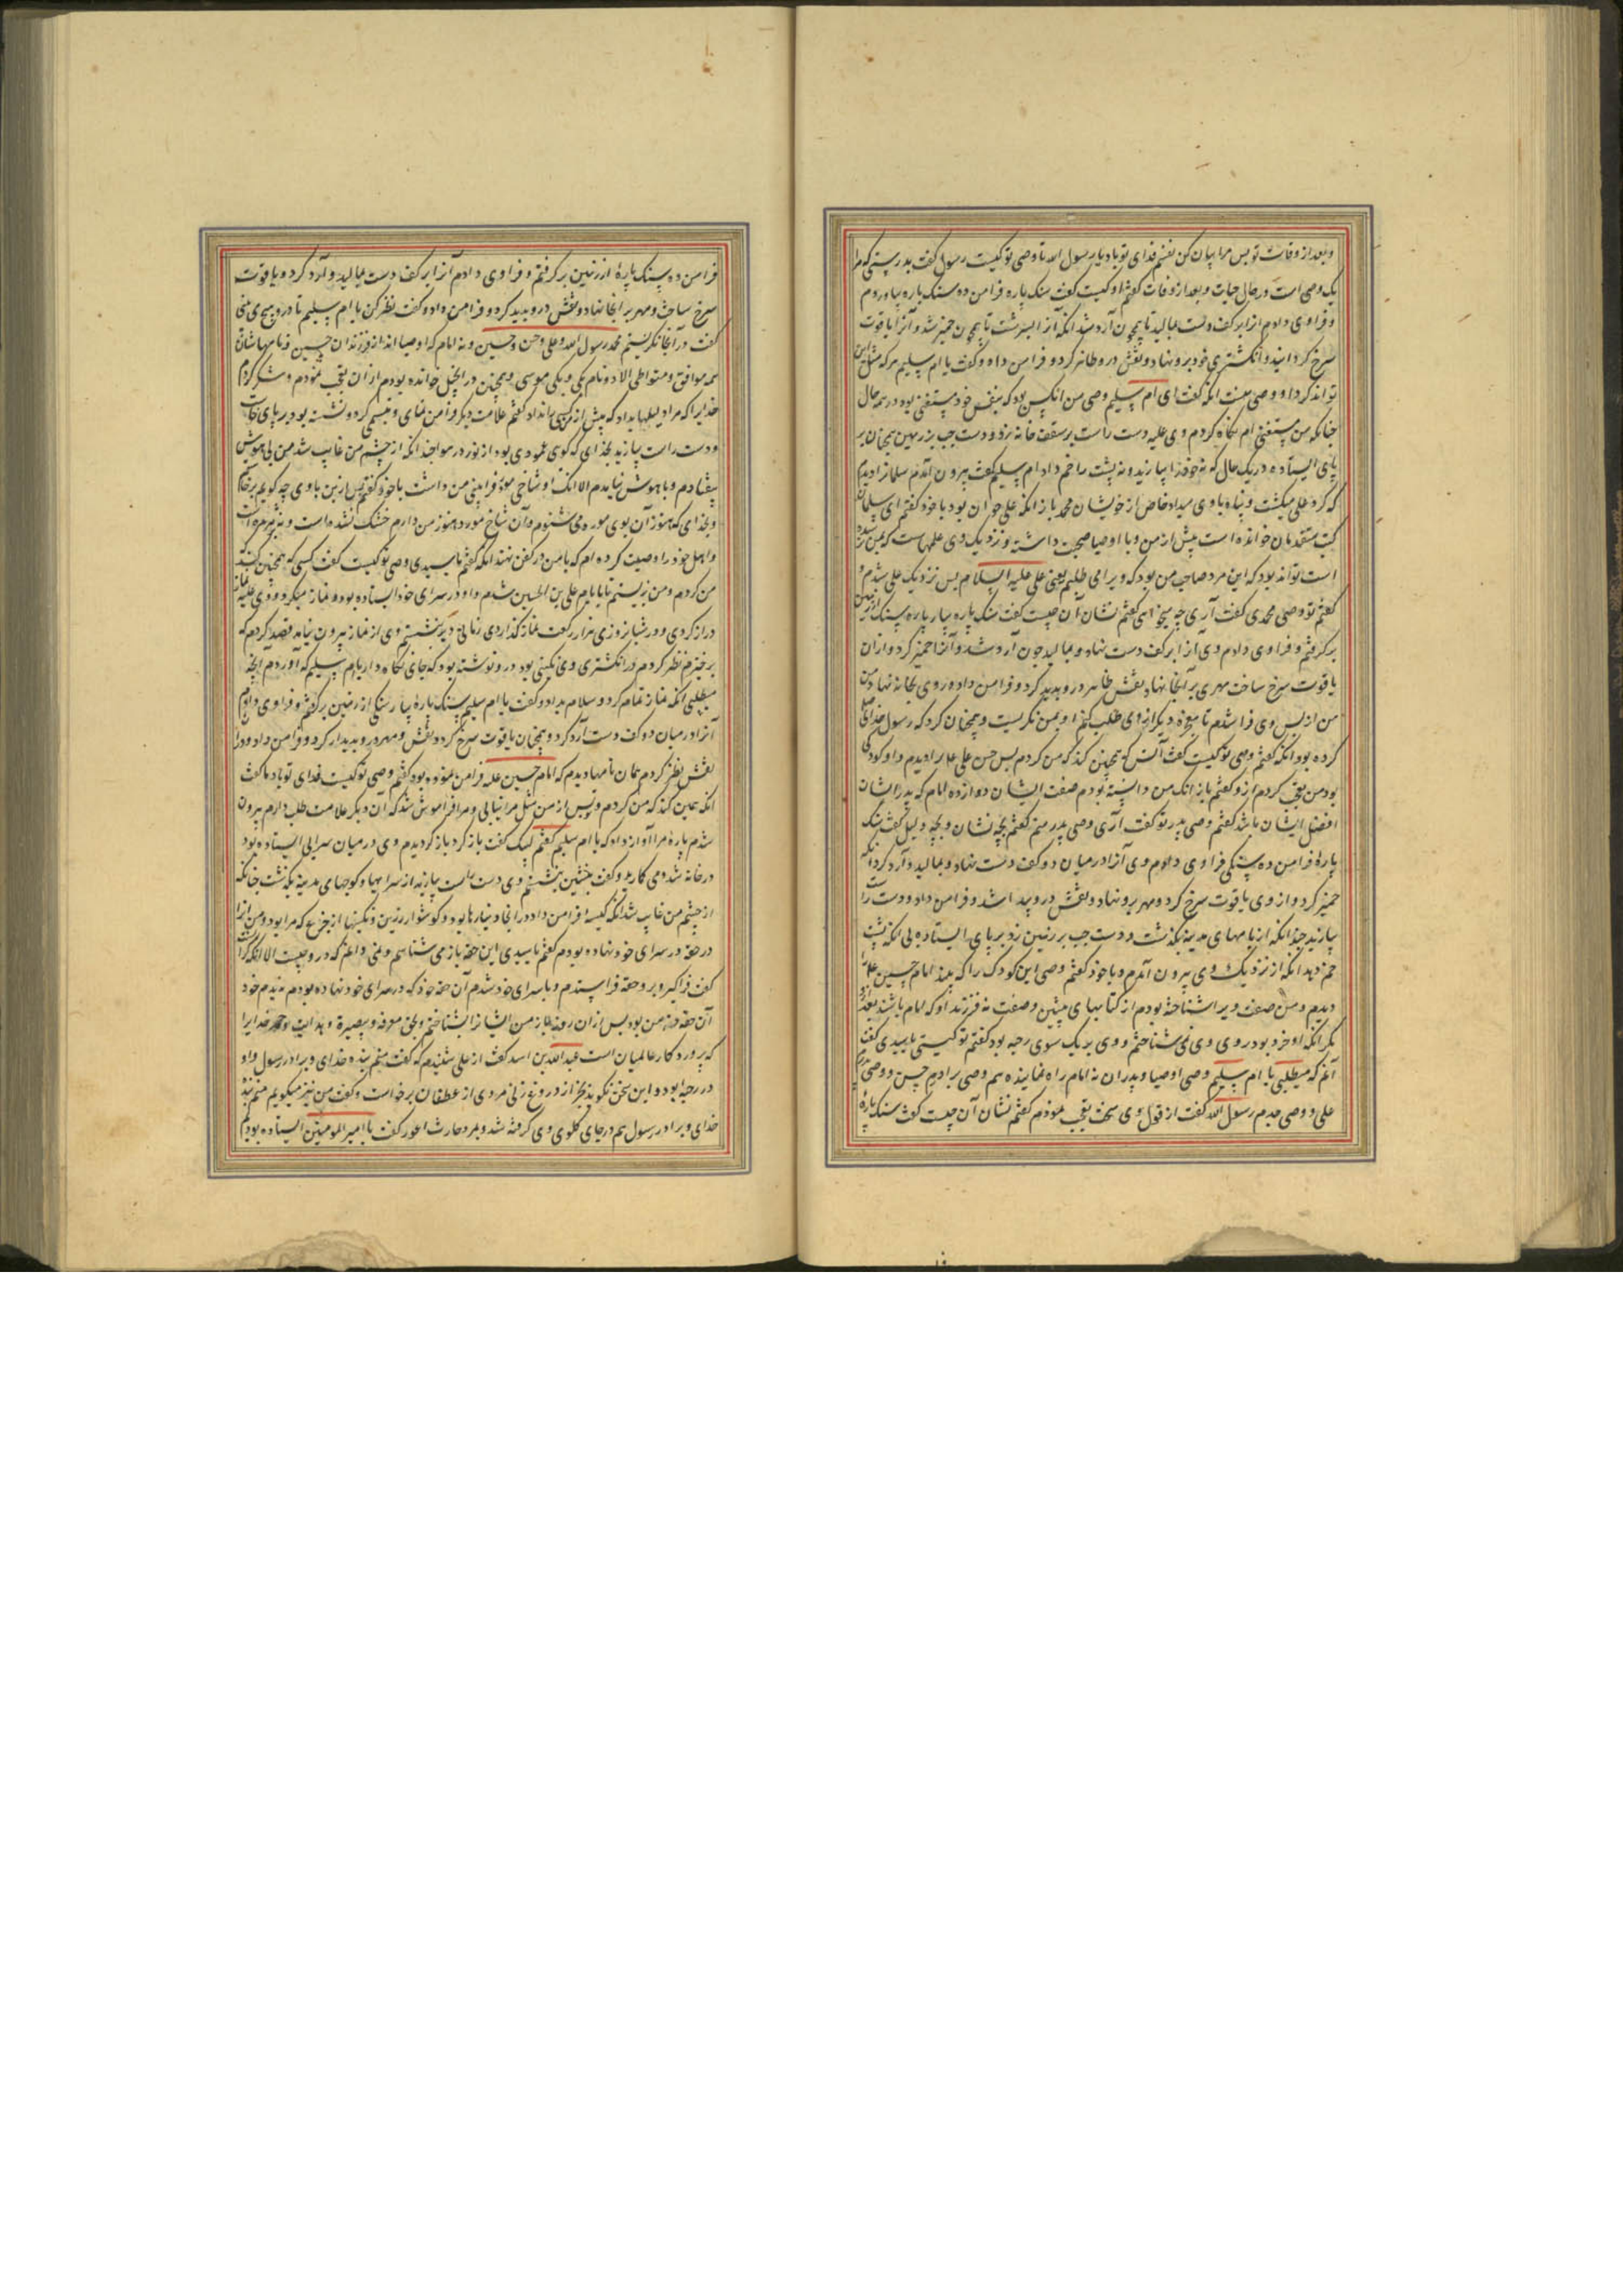 و بعد از وفات تو بس مرا بیان کن نفسم فدای تو باد یا رسول الله تا وصی تو کیست رسول کفت بدرستی که مرا
یک وصی است در حال حیات و بعد از وفات کفتم او کیست کفت سنک پاره فرا من ده سنک پاره بیاوردم
و فرا وی دادم از ابر کف دست بمالید تا همچون آرد شد انکه آنرا بسرشت تا همچون خمیر شد و آنرا یاقوت
سرخ کردانید و انکشتری خود برو نهاد و نقش درو ظاهر کرد و فرا من داد و کفت یا ام سلیم هر که مثل این
تواند کرد او وصی منست انکه کفت ای ام سلیم وصی من انکس بود که بنفس خود مستغنی بود در همه حال
جنانکه من مستغنی ام نکاه کردم وی علیه دست راست بر سقف خانه زد و دست جب بر زمین همجنان بر
پای ایستاده در یک حال که نه خود را بیازید و نه پشت را خم داد ام سلیم کفت بیرون آمدم سلمانرا دیدم
که کرد علی میکشت و پناه با وی میداد خاص از خویشان محمد باز انکه علی جوان بود با خود کفتم ای سلمان
کتب متقدمان خوانده است پیش از من و با اوصیا صحبت داشته و نزدیک وی علمهاست که بمن نرسیده
است تواند بود که این مرد صاحب من بود که ویرا می طلبم یعنی علی علیه السلام بس نزدیک علی شدم و
کفتم تو وصی محمدی کفت آری چه میخواهی کفتم نشان آن جیست کفت سنک پاره بیار پاره سنک از زمین
بر کرفتم و فرا وی دادم وی آنرا بر کف دست نهاد و بمالید جون آرد شد و آنرا خمیر کرد و ازان
یاقوت سرخ ساخت مهری بر آنجا نهاد نقش ظاهر درو پدید کرد و فرا من داد و روی بخانه نهاد و من
من از پس وی فرا شدم تا معجزه دیکر از وی طلب کنم او بمن نکریست و همجنان کرد که رسول خدای صلی
کرده بود انکه کفتم وصی تو کیست کفت آنکس که همچنین کند که من کردم بس حسن علی علیه را دیدم و او کودکی
بود من تعجب کردم ازو کفتم باز انکه من دانسته بودم صفت ایشان دوازده امام که پدر ایشان
افضل ایشان باشد کفتم وصی پدر تو کفت آری وصی پدر منم کفتم بچه نشان و بچه دلیل کفت سنک
پاره فرا من ده سنکی فرا وی دادم وی آنرا در میان دو کف دست نهاد و بمالید و آرد کرد انکه
خمیر کرد و از وی یاقوت سرخ کرد و مهر برو نهاد و نقش درو پیدا شد و فرا من داد و دست راست
بیازید جندانکه از بامهای مدینه بکذشت و دست جب بر زمین زد بر پای ایستاده بی انکه پشت
خم دهد انکه از نزدیک وی بیرون آمدم و با خود کفتم وصی این کودک را که بیند امام حسین علیه را
دیدم و من صفت ویرا شناخته بودم از کتابهای پیشین و صفت نه فرزند او که امام باشند بعد ازو
مکر انکه او خرد بود روی وی نمی شناختم و وی بر یک سوی رحبه بود کفتم تو کیستی یا سیدی کفت
آنم که میطلبی یا ام سلیم وصی اوصیا و پدران نه امام راه نماینده هم وصی برادرم حسن و وصی پدرم
علی و وصی جدم رسول الله کفت از قول وی سخت تعجب نمودم کفتم نشان آن جیست کفت سنک پاره
فرا من ده سنک پاره از زمین بر کرفتم و فرا وی دادم آنرا بر کف دست بمالید و آرد کرد و یاقوت
سرخ ساخت و مهر بر آنجا نهاد و نقش درو پدید کرد و فرا من داد و کفت نظر کن یا ام سلیم تا درو هیچ می بینی
کفت در آنجا نکریستم محمد رسول الله و علی و حسن و حسین و نه امام که اوصیا اند از فرزندان حسین و نامهاشان
همه موافق و متواطی الا دو نام یکی و یکی موسی و همچنین در انجیل خوانده بودم ازان تعجب نمودم و شکر کردم
خدایرا که مرا دلیلها بداد که پیش از من کسی را نداد کفتم علامت دیکر فرا من نمای و تبسمی کرد و نشسته بود بر پای خاست
و دست راست بیازید بخدای که کوی عمودی بود از نور در هوا جندانکه از چشم من غایب شد من بی هوش
بیفتادم و با هوش نیامدم الا انکه او شاخی مورد فرا بینی من داشت با خود کفتم بس ازین با وی چه کویم برخاستم
و بخدای که هنوز آن بوی مورد می شنوم و آن شاخ مورد هنوز من دارم خشک نشده است و نه پژمرده است
و اهل خود را وصیت کرده ام که با من در کفن نهند انکه کفتم یا سیدی وصی تو کیست کفت کسی که همچنین کند که
من کردم و من بزیستم تا بایام علی بن الحسین شدم و او در سرای خود ایستاده بود و نماز میکرد و وی علیه نماز
دراز کردی و در شبانروزی هزار رکعت نماز کذاردی زمانی دیر بنشستم وی از نماز بیرون نیامد قصد کردم که
برخیزم نظر کردم در انکشتری وی نکینی بود درو نوشته بود که جای نکاه دار یا ام سلیم که آوردم انجه
میطلبی انکه نماز تمام کرد و سلام بداد و کفت یا ام سلیم سنک پاره بیار سنکی از زمین بر کرفتم و فرا وی دادم
آنرا در میان دو کف دست آرد کرد و همچنان یاقوت سرخ کرد و نقش و مهر درو پدیدار کرد و فرا من داد و درا
نقش نظر کردم همان نامها دیدم که امام حسین علیه فرا من نموده بود کفتم وصی تو کیست فدای تو باد ما کفت
انکه همین کند که من کردم و پس از من مثل مرا نیابی و مرا فراموش شد که ان دیکر علامت طلب دارم بیرون
شدم پاره مرا آواز داد که یا ام سلیم کفتم لبیک کفت باز کرد باز کردیدم وی در میان سرای ایستاده بود
در خانه شد و می کارید و کفت بنشین بنشستم وی دست راست بیازید از سراها و کوجهای مدینه بکذشت جنانکه
از چشم من غایب شد انکه کیسه فرا من داد در انجا دینارها بود و دو کوشوار زرین و نکینها از جزع که مرا بود و من آنرا
در حقه در سرای خود نهاده بودم کفتم یا سیدی این حقه باز می شناسم و نمی دانم که درو چیست الا انکه کران
کفت فرا کیر و برو حقه فرا ستدم و با سرای خود شدم آن حقه خود که در سرای خود نهاده بودم ندیدم خود
آن حقه حقه من بود بس ازان روز باز من ایشانرا بشناختم و بحق معرفة و بصیرة و هدایت و حمد خدایرا
که پرورد کار عالمیان است عبدالله بن اسد کفت از علی شنیدم که کفت منم بنده خدای و برادر رسول و او
در رحبه بود و این سخن نکوید بجز از دروغ زنی مردی از غطفان برخاست و کفت من نیز میکویم منم بنده
خدای و برادر رسول هم در جای کلوی وی کرفته شد و بمرد حارث اعور کفت با امیر المومنین ایستاده بودم